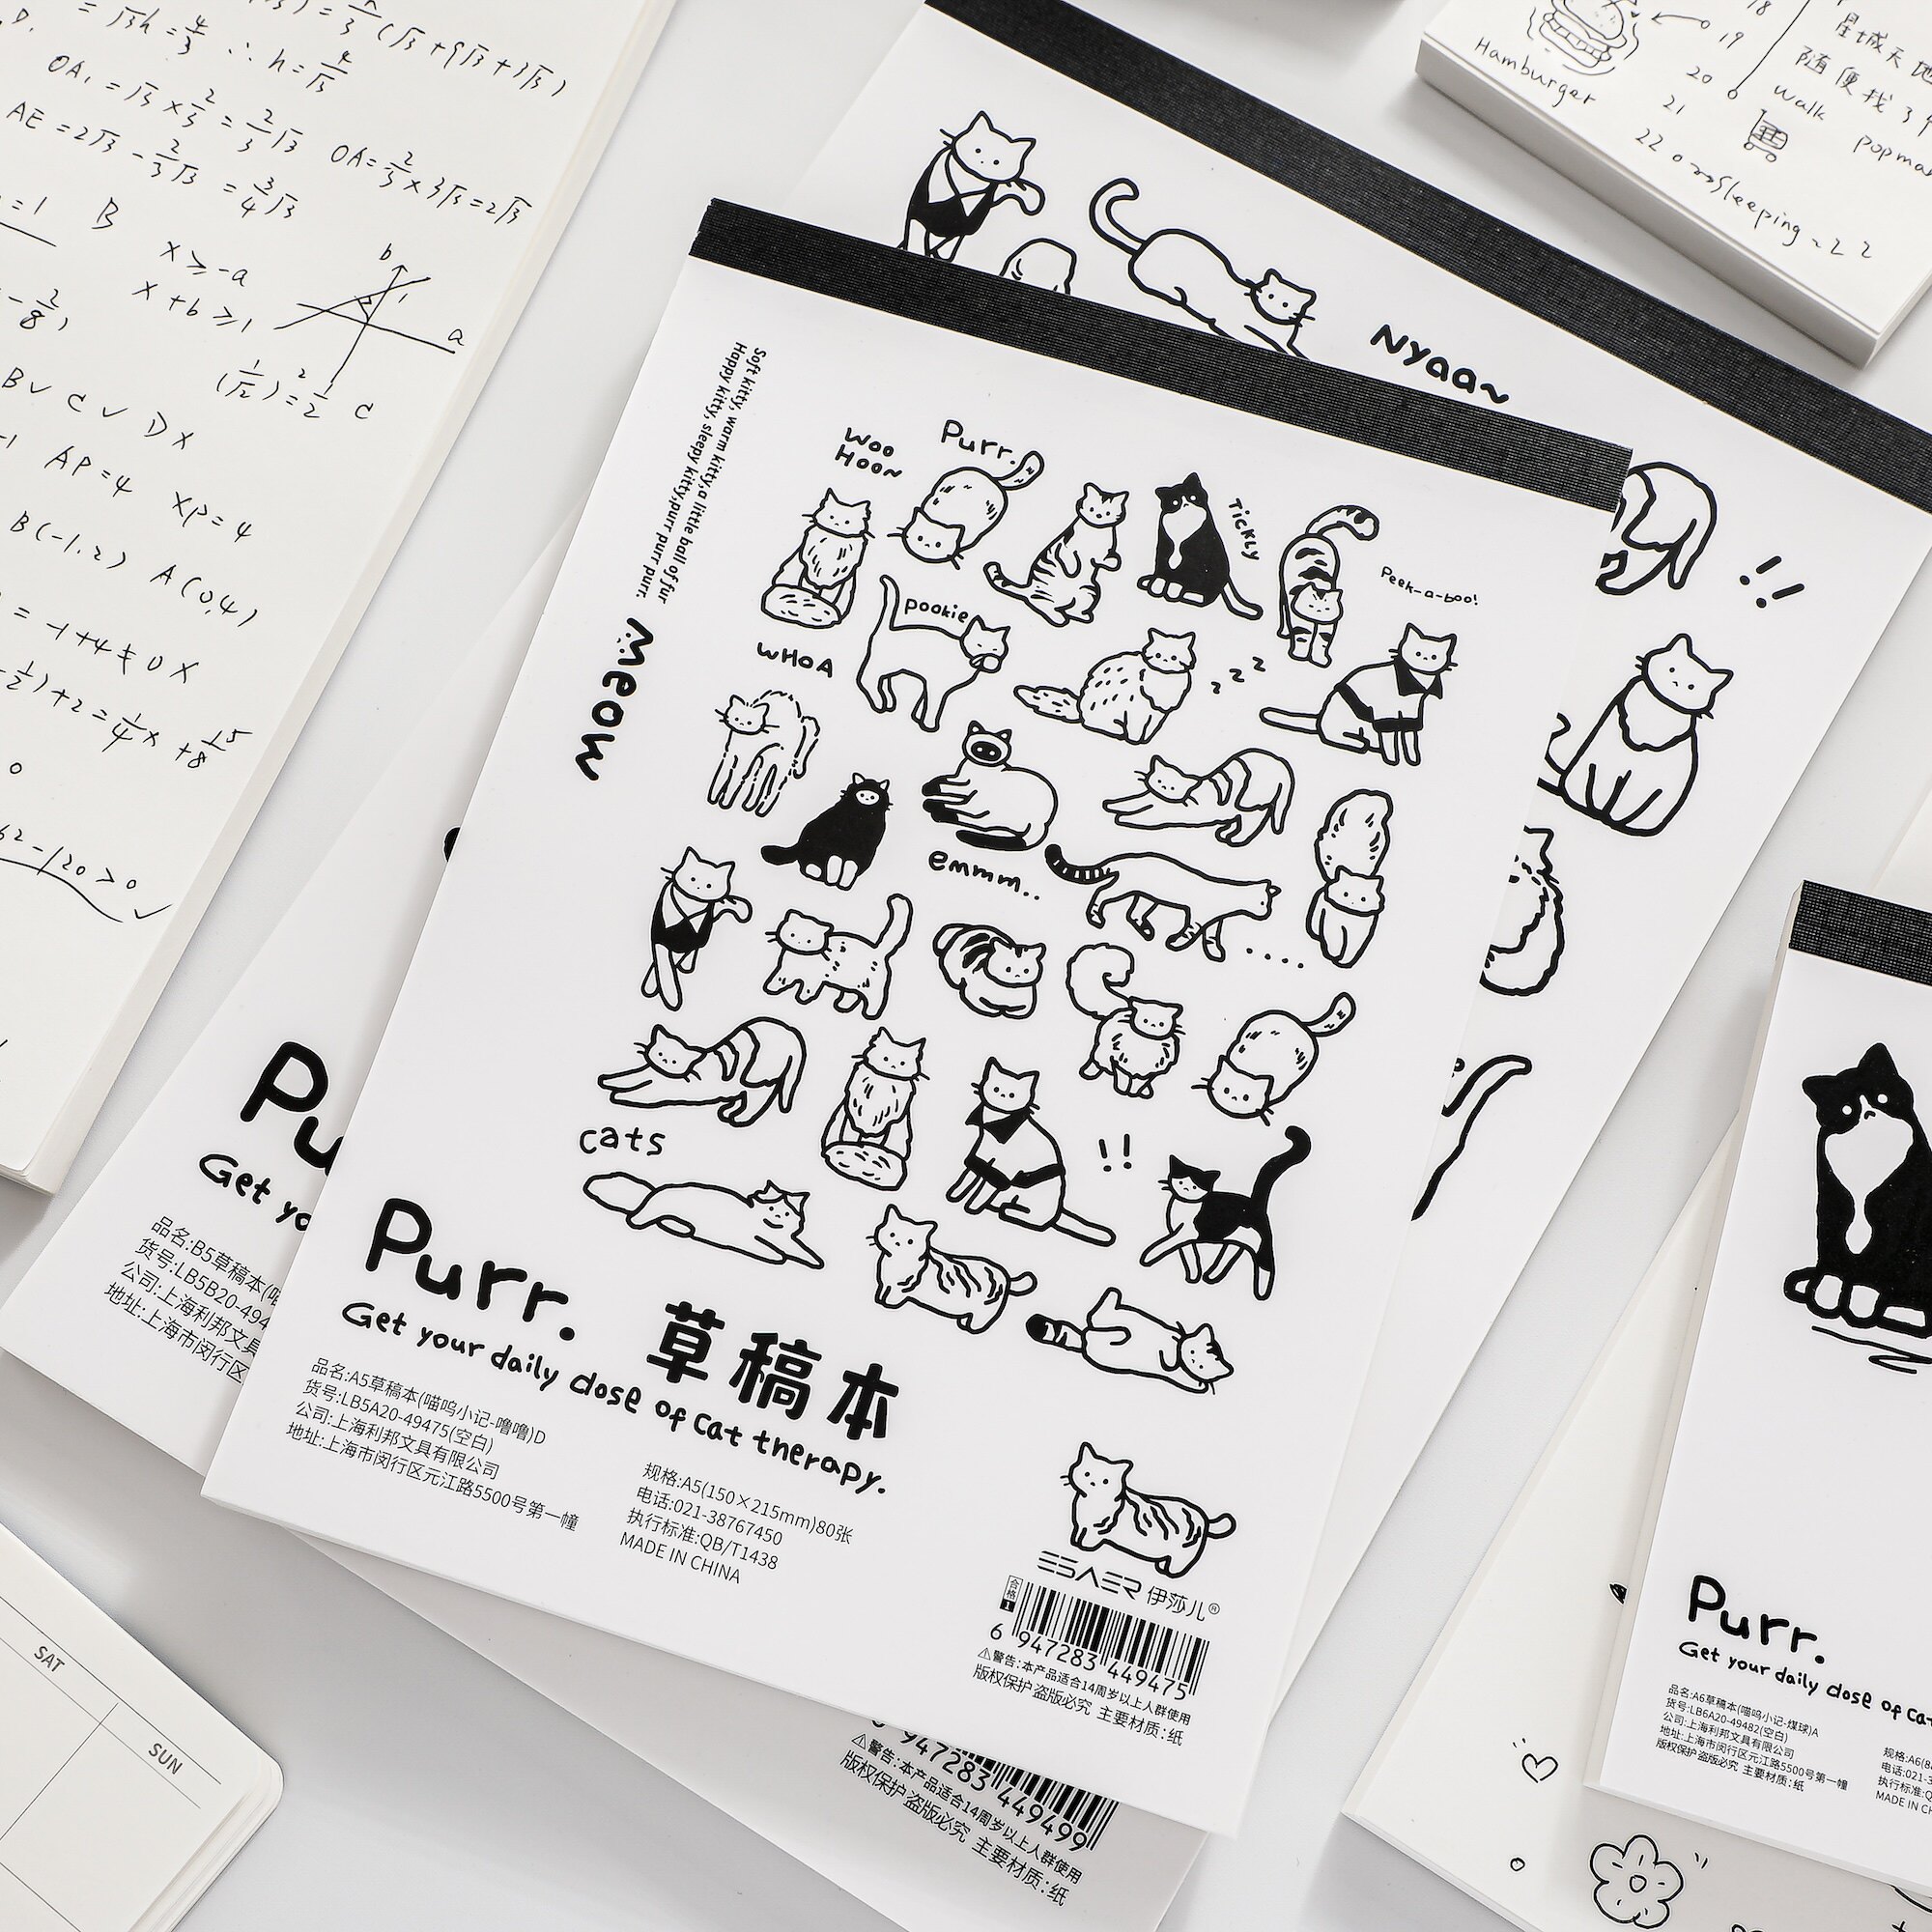 = √3h = 4/3 ∴ h = 4/√3
OA₁ = √3 × 2/3 = 2/3 √3
OA = 2/3 × 3√3 = 2√3
AE = 2√3 - 2/3 √3 = 3/4 √3
= 1 B
x ≥ -a
x + b ≥ 1
b
a
(1/√2)² = 1/2 C
B✓ C✓ D×
AP = 4 XP = 4
B(-1.2) A(0,4)
= -1 + 4 ≠ 0 ×
+ 2 = 1/4 x + 15/8
- 120 > 0 ✓
Hamburger
18
19
20
21
22 Sleeping ~ z z
星城天地
随便找
walk
Nyaa~
!!
Soft kitty, warm kitty,a little ball of fur
Happy kitty, sleepy kitty,purr purr purr.
Meow
Woo
Hoo~
Purr.
Tickly
Peek-a-boo!
pookie
WHOA
zzz
emmm..
....
cats
!!
Purr. 草稿本
Get your daily dose of cat therapy.
品名:A5草稿本(喵呜小记-噜噜)D
货号:LB5A20-49475(空白)
公司:上海利邦文具有限公司
地址:上海市闵行区元江路5500号第一幢
规格:A5(150×215mm)80张
电话:021-38767450
执行标准:QB/T1438
MADE IN CHINA
ESAER 伊莎儿®
合格 1
6 947283 449475
⚠警告:本产品适合14周岁以上人群使用
版权保护 盗版必究 主要材质:纸
Pu
Get yo
品名:B5草稿本(喵
货号:LB5B20-494
公司:上海利邦文具
地址:上海市闵行区
6 947283 449499
⚠警告:本产品适合14周岁以上人群使用
版权保护 盗版必究 主要材质:纸
Purr.
Get your daily dose of cat
品名:A6草稿本(喵呜小记-煤球)A
货号:LB6A20-49482(空白)
公司:上海利邦文具有限公司
地址:上海市闵行区元江路5500号第一幢
版权保护 盗版必究 主要材质:纸
规格:A6(8
电话:021-3
执行标准:Q
MADE IN CH
SAT
SUN